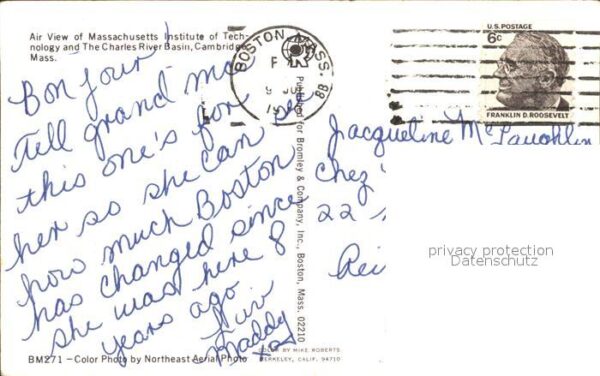 Air View of Massachusetts Institute of Tech-
nology and The Charles River Basin, Cambridge
Mass.
Bon jour
Tell grand ma
this one's for
her so she can see
how much Boston
has changed since
she was here 8
years ago.
Luv
Maddy
BM271-Color Photo by Northeast Aerial Photo
BOSTON, MASS.
Published for Bromley & Company, Inc., Boston, Mass. 02210
COLOR BY MIKE ROBERTS
BERKELEY, CALIF. 94710
U.S. POSTAGE
6c
FRANKLIN D. ROOSEVELT
Jacqueline McLaughlin
Chez
22
privacy protection
Datenschutz